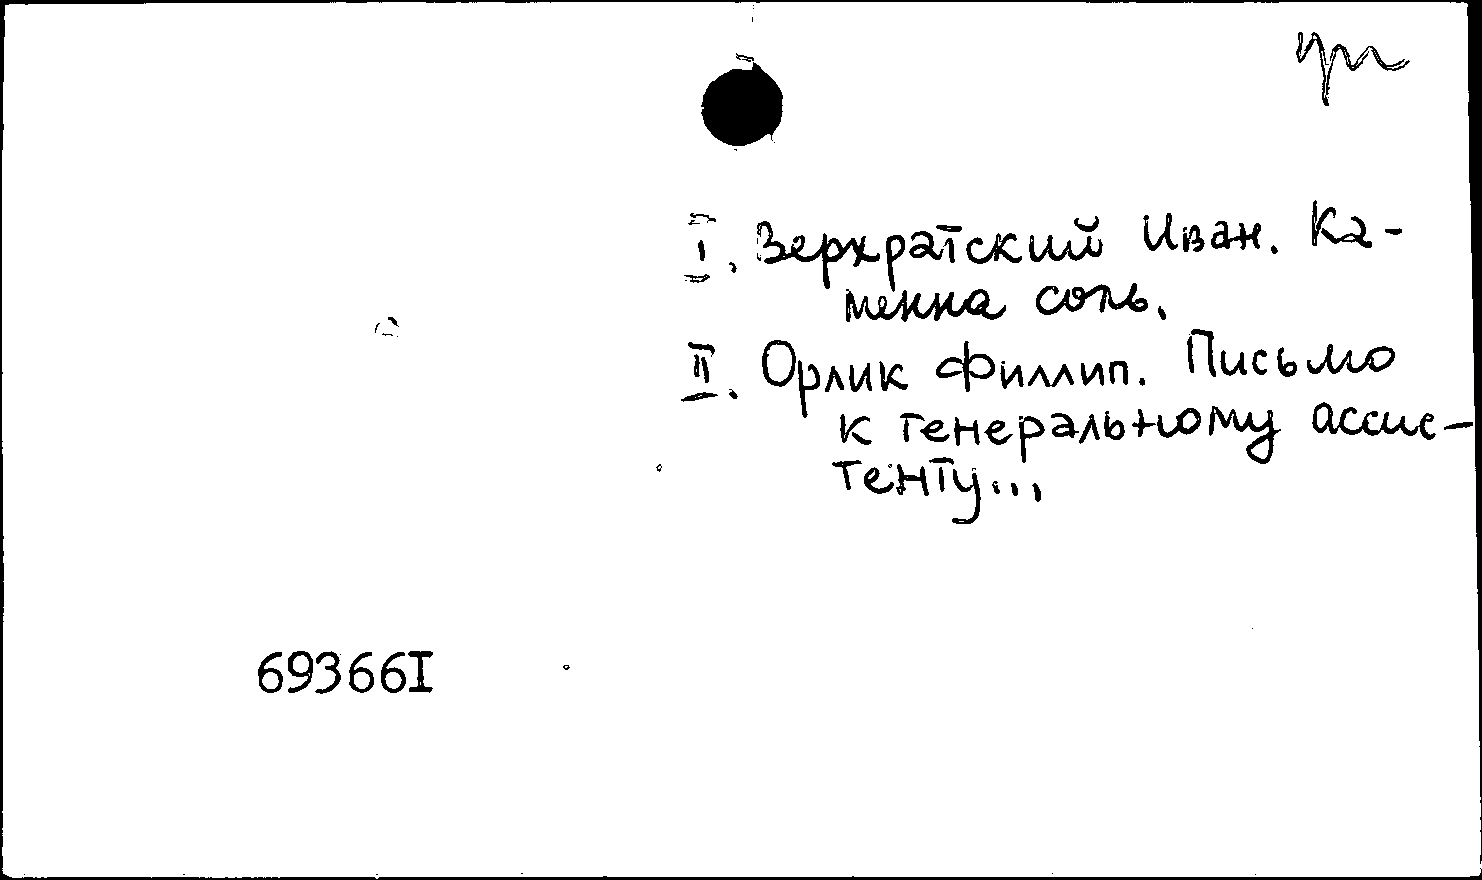 I. Верхратский Иван. Ка-
менна соль.
II. Орлик Филлип. Письмо
к генеральному ассис-
тенту...
69366I